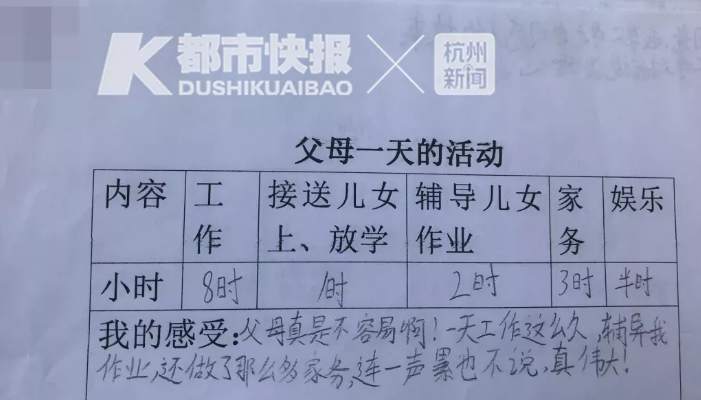 都市快报
杭州
新闻
DUSHIKUAIBAO
父母一天的活动
内容 工作 接送儿女上、放学 辅导儿女作业 家务 娱乐
小时 8时 1时 2时 3时 半时
我的感受:父母真是不容易啊!一天工作这么久,辅导我
作业,还做了那么多家务,连一声累也不说,真伟大!